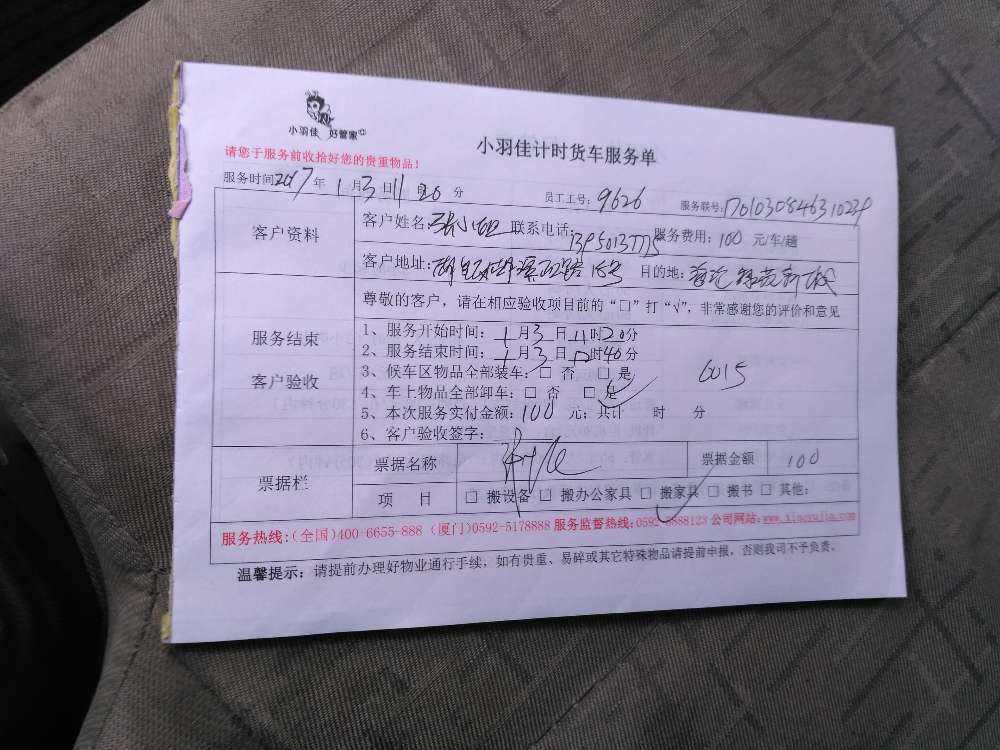 小羽佳 好管家
小羽佳计时货车服务单
请您于服务前收拾好您的贵重物品!
服务时间2017年1月3日11时20分 员工工号:9626 服务联号:
客户资料
客户姓名: 联系电话: 服务费用:100元/车/趟
客户地址: 目的地:
服务结束
客户验收
尊敬的客户,请在相应验收项目前的“□”打“√”,非常感谢您的评价和意见
1、服务开始时间:1月3日11时20分
2、服务结束时间:1月3日12时40分
3、候车区物品全部装车:□ 否 □ 是 6015
4、车上物品全部卸车:□ 否 □ 是
5、本次服务实付金额:100元;共计 时 分
6、客户验收签字:
票据栏
票据名称 票据金额 100
项 目 □ 搬设备 □ 搬办公家具 □ 搬家具 □ 搬书 □ 其他:
服务热线:(全国)400-6655-888 (厦门)0592-5178888 服务监督热线:0592-8888123 公司网站:www.xiaoyujia.com
温馨提示:请提前办理好物业通行手续,如有贵重、易碎或其它特殊物品请提前申报,否则我司不予负责。